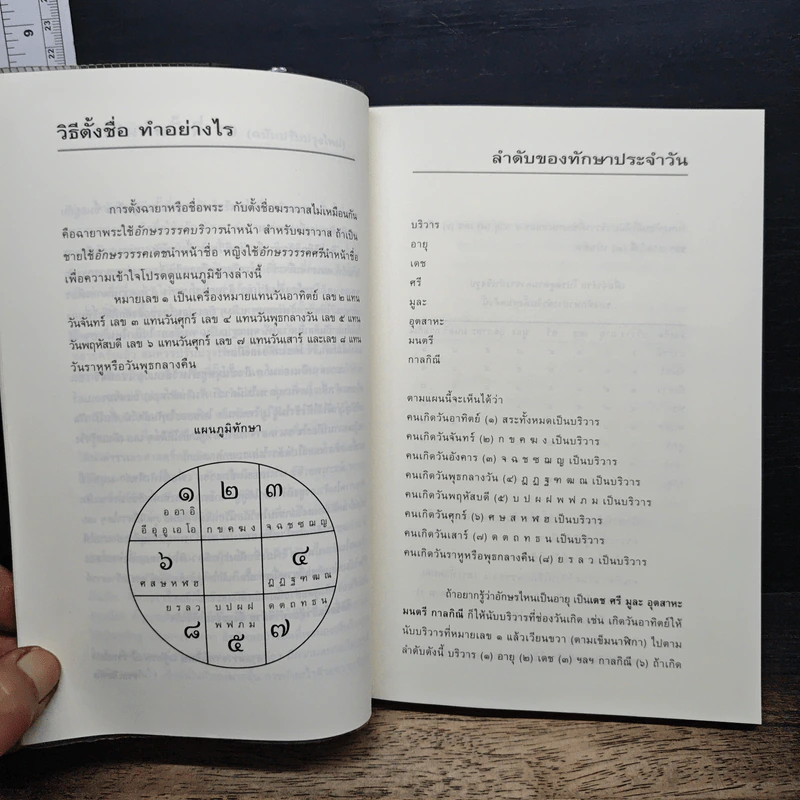 9
22
23
วิธีตั้งชื่อ ทำอย่างไร
การตั้งฉายาหรือชื่อพระ กับตั้งชื่อฆราวาสไม่เหมือนกัน
คือฉายาพระใช้อักษรวรรคบริวารนำหน้า สำหรับฆราวาส ถ้าเป็น
ชายใช้อักษรวรรคเดชนำหน้าชื่อ หญิงใช้อักษรวรรคศรีนำหน้าชื่อ
เพื่อความเข้าใจโปรดดูแผนภูมิข้างล่างนี้
หมายเลข ๑ เป็นเครื่องหมายแทนวันอาทิตย์ เลข ๒ แทน
วันจันทร์ เลข ๓ แทนวันศุกร์ เลข ๔ แทนวันพุธกลางวัน เลข ๕ แทน
วันพฤหัสบดี เลข ๖ แทนวันศุกร์ เลข ๗ แทนวันเสาร์ และเลข ๘ แทน
วันราหูหรือวันพุธกลางคืน
แผนภูมิทักษา
๑ ๒ ๓
อ อา อิ
อี อุ อู เอ โอ ก ข ค ฆ ง จ ฉ ช ซ ฌ ญ
๖ ๔
ศ ส ษ ห ฬ ฮ ฎ ฏ ฐ ฑ ฒ ณ
ย ร ล ว บ ป ผ ฝ ด ต ถ ท ธ น
พ ฟ ภ ม
๘ ๕ ๗
ลำดับของทักษาประจำวัน
บริวาร
อายุ
เดช
ศรี
มูละ
อุตสาหะ
มนตรี
กาลกิณี
ตามแผนนี้จะเห็นได้ว่า
คนเกิดวันอาทิตย์ (๑) สระทั้งหมดเป็นบริวาร
คนเกิดวันจันทร์ (๒) ก ข ค ฆ ง เป็นบริวาร
คนเกิดวันอังคาร (๓) จ ฉ ช ซ ฌ ญ เป็นบริวาร
คนเกิดวันพุธกลางวัน (๔) ฎ ฏ ฐ ฑ ฒ ณ เป็นบริวาร
คนเกิดวันพฤหัสบดี (๕) บ ป ผ ฝ พ ฟ ภ ม เป็นบริวาร
คนเกิดวันศุกร์ (๖) ศ ษ ส ห ฬ ฮ เป็นบริวาร
คนเกิดวันเสาร์ (๗) ด ต ถ ท ธ น เป็นบริวาร
คนเกิดวันราหูหรือพุธกลางคืน (๘) ย ร ล ว เป็นบริวาร
ถ้าอยากรู้ว่าอักษรไหนเป็นอายุ เป็นเดช ศรี มูละ อุตสาหะ
มนตรี กาลกิณี ก็ให้นับบริวารที่ช่องวันเกิด เช่น เกิดวันอาทิตย์ให้
นับบริวารที่หมายเลข ๑ แล้วเวียนขวา (ตามเข็มนาฬิกา) ไปตาม
ลำดับดังนี้ บริวาร (๑) อายุ (๒) เดช (๓) ฯลฯ กาลกิณี (๖) ถ้าเกิด